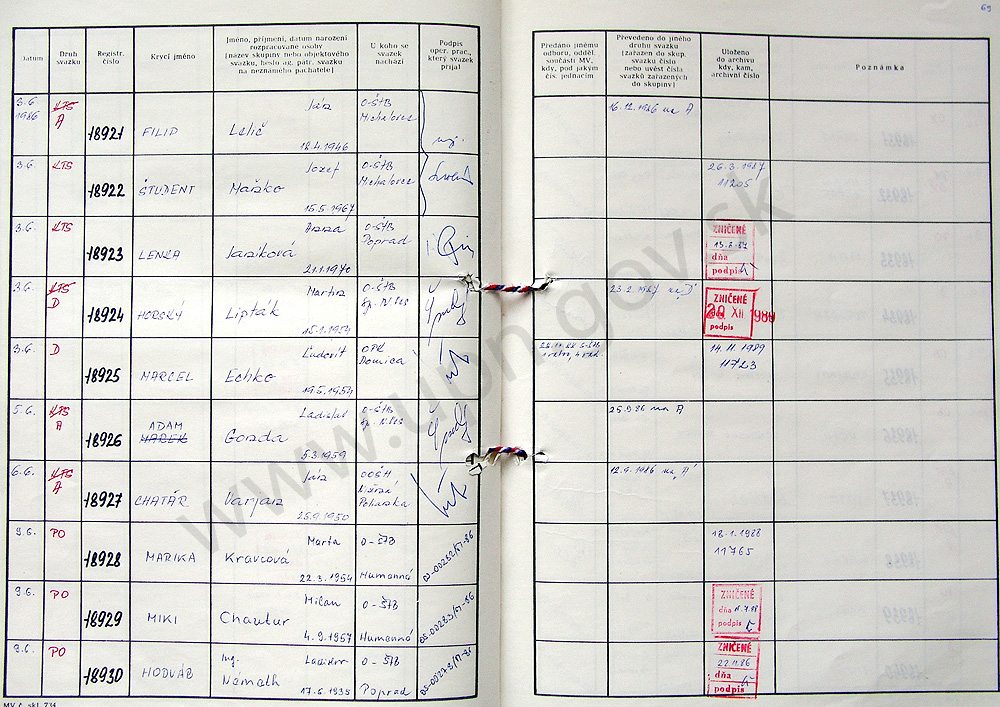 69
Datum
Druh svazku
Registr. číslo
Krycí jméno
Jméno, příjmení, datum narození
rozpracované osoby
(název skupiny nebo objektového
svazku, heslo ag. pátr. svazku
na neznámého pachatele)
U koho se
svazek
nachází
Podpis
oper. prac.,
který svazek
přijal
Předáno jinému
odboru, odděl.
součásti MV,
kdy, pod jakým
čís. jednacím
Převedeno do jiného
druhu svazku
(zařazen do skup.
svazku číslo
nebo uvést čísla
svazků zařazených
do skupiny)
Uloženo
do archivu
kdy, kam,
archivní číslo
Poznámka
3.6. 1986 KTS A 18921 FILIP Ján 18.4.1946 O-ŠTB Michalovce 16.12.1986 na A
3.6. KTS 18922 ŠTUDENT Jozef Maško 15.5.1967 O-ŠTB Michalovce 26.3.1987 11205
3.6. KTS 18923 LENKA 21.1.1970 O-ŠTB Poprad ZNIČENÉ dňa podpis
3.6. KTS D 18924 HORSKÝ Martin Lipták 15.1.1954 O-ŠTB Sp. N. Ves 23.2.1987 na D ZNIČENÉ 20 XII 1989 podpis
3.6. D 18925 MARCEL Ľudovít Echko 19.5.1954 OPK Domica 14.11.1989 11723
5.6. KTS A 18926 ADAM MAREK Ladislav Gonda 5.3.1959 O-ŠTB Sp. N. Ves 25.9.86 na A
6.6. KTS A 18927 CHATÁR Ján Varjan 25.9.1950 12.9.1986 na A
9.6. PO 18928 MARIKA Marta Kravcová 22.3.1954 O-ŠTB Humenné 18.1.1988 11765
9.6. PO 18929 MIKI Milan Chautur 4.9.1957 O-ŠTB Humenné ZNIČENÉ dňa podpis
9.6. PO 18930 HODVÁB Ing. Ladislav Németh 17.6.1935 O-ŠTB Poprad ZNIČENÉ 22.11.86 dňa podpis
MV č. skl. 734
www.upn.gov.sk